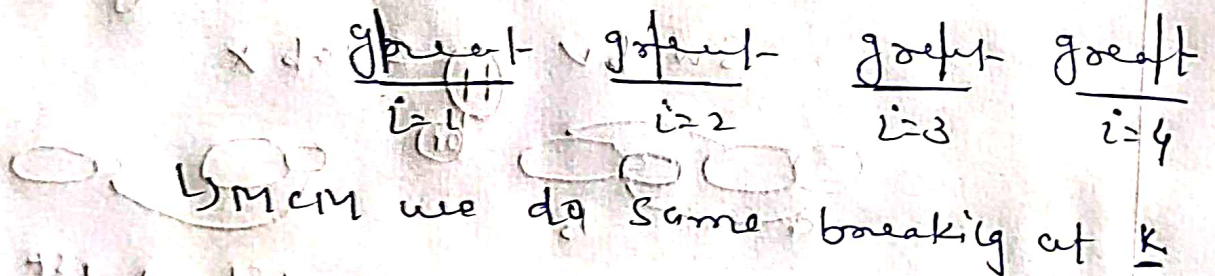 g|reat gr|eat gre|at grea|t
i=1 i=2 i=3 i=4
↳ MCM we do same breaking at K